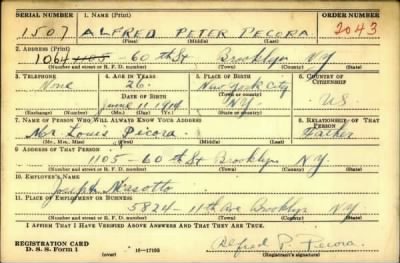 SERIAL NUMBER 1. NAME (Print) ORDER NUMBER
1507 ALFRED PETER PECORA 2043
(First) (Middle) (Last)
2. ADDRESS (Print)
1064 1105 60 th St Brooklyn NY
(Number and street or R. F. D. number) (Town) (County) (State)
3. TELEPHONE 4. AGE IN YEARS 5. PLACE OF BIRTH 6. COUNTRY OF CITIZENSHIP
None 26 New York City
DATE OF BIRTH (Town or county)
June 11 1914 NY US
(Exchange) (Number) (Mo.) (Day) (Yr.) (State or country)
7. NAME OF PERSON WHO WILL ALWAYS KNOW YOUR ADDRESS 8. RELATIONSHIP OF THAT PERSON
Mr Louis Pecora Father
(Mr., Mrs., Miss) (First) (Middle) (Last)
9. ADDRESS OF THAT PERSON
1105 - 60 th St Brooklyn NY
(Number and street or R. F. D. number) (Town) (County) (State)
10. EMPLOYER'S NAME
Joseph
11. PLACE OF EMPLOYMENT OR BUSINESS
5824 - 11th Ave Brooklyn NY
(Number and street or R. F. D. number) (Town) (County) (State)
I AFFIRM THAT I HAVE VERIFIED ABOVE ANSWERS AND THAT THEY ARE TRUE.
REGISTRATION CARD
D. S. S. Form 1 (over) 16-17105 Alfred P. Pecora
(Registrant's signature)